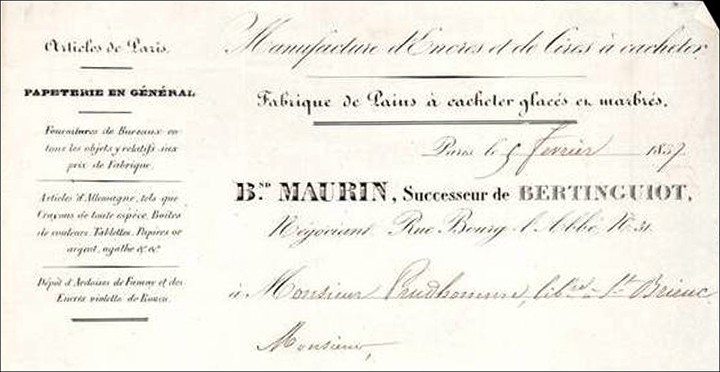 Articles de Paris.
PAPETERIE EN GÉNÉRAL
Fournitures de Bureaux en
tous les objets y relatifs aux
prix de Fabrique.
Articles d'Allemagne, tels que
Crayons de toute espèce, Boites
de couleurs, Tablettes, Papiers or
argent, agathe &c &c
Dépôt d'Ardoises de Fumay et des
Encres violette de Rouen.
Manufacture d'Encres et de Cires à cacheter,
Fabrique de Pains à cacheter glacés et marbrés.
Paris le 5 fevrier 1837
B.ND MAURIN, Successeur de BERTINGUIOT,
Négociant Rue Bourg-l'Abbé, N. 31.
à Monsieur Prudhomme, lib.re à St Brieuc
Monsieur,